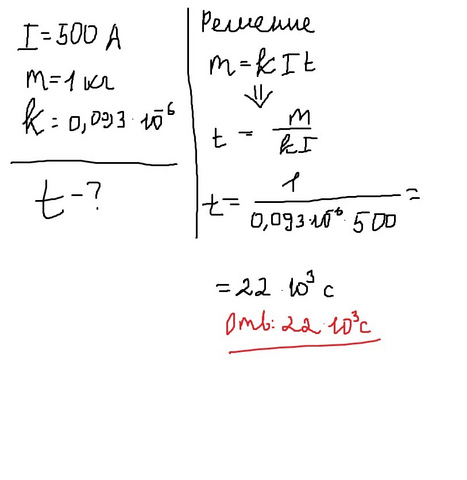 I = 500 A
m = 1 кг
k = 0,093 · 10⁻⁶
t - ?
Решение
m = k I t
⇓
t = m / kI
t = 1 / 0,093 · 10⁻⁶ · 500 =
= 22 · 10³ c
Отв: 22 · 10³ c